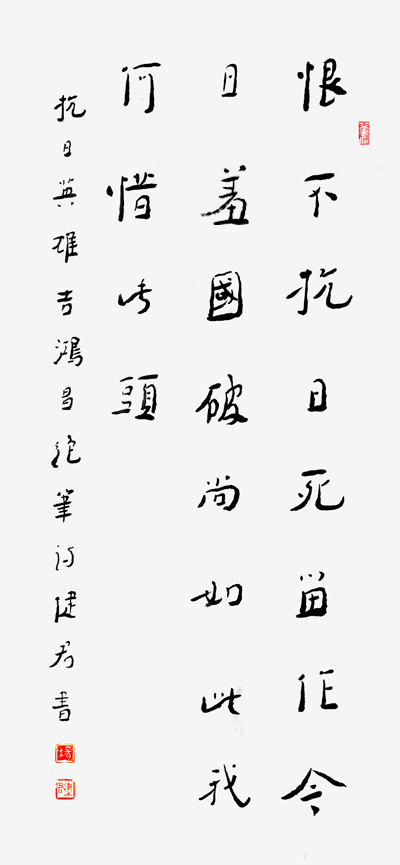 恨不抗日死留作今
日羞國破尚如此我
何惜此頭
抗日英雄吉鴻昌絕筆詩健君書